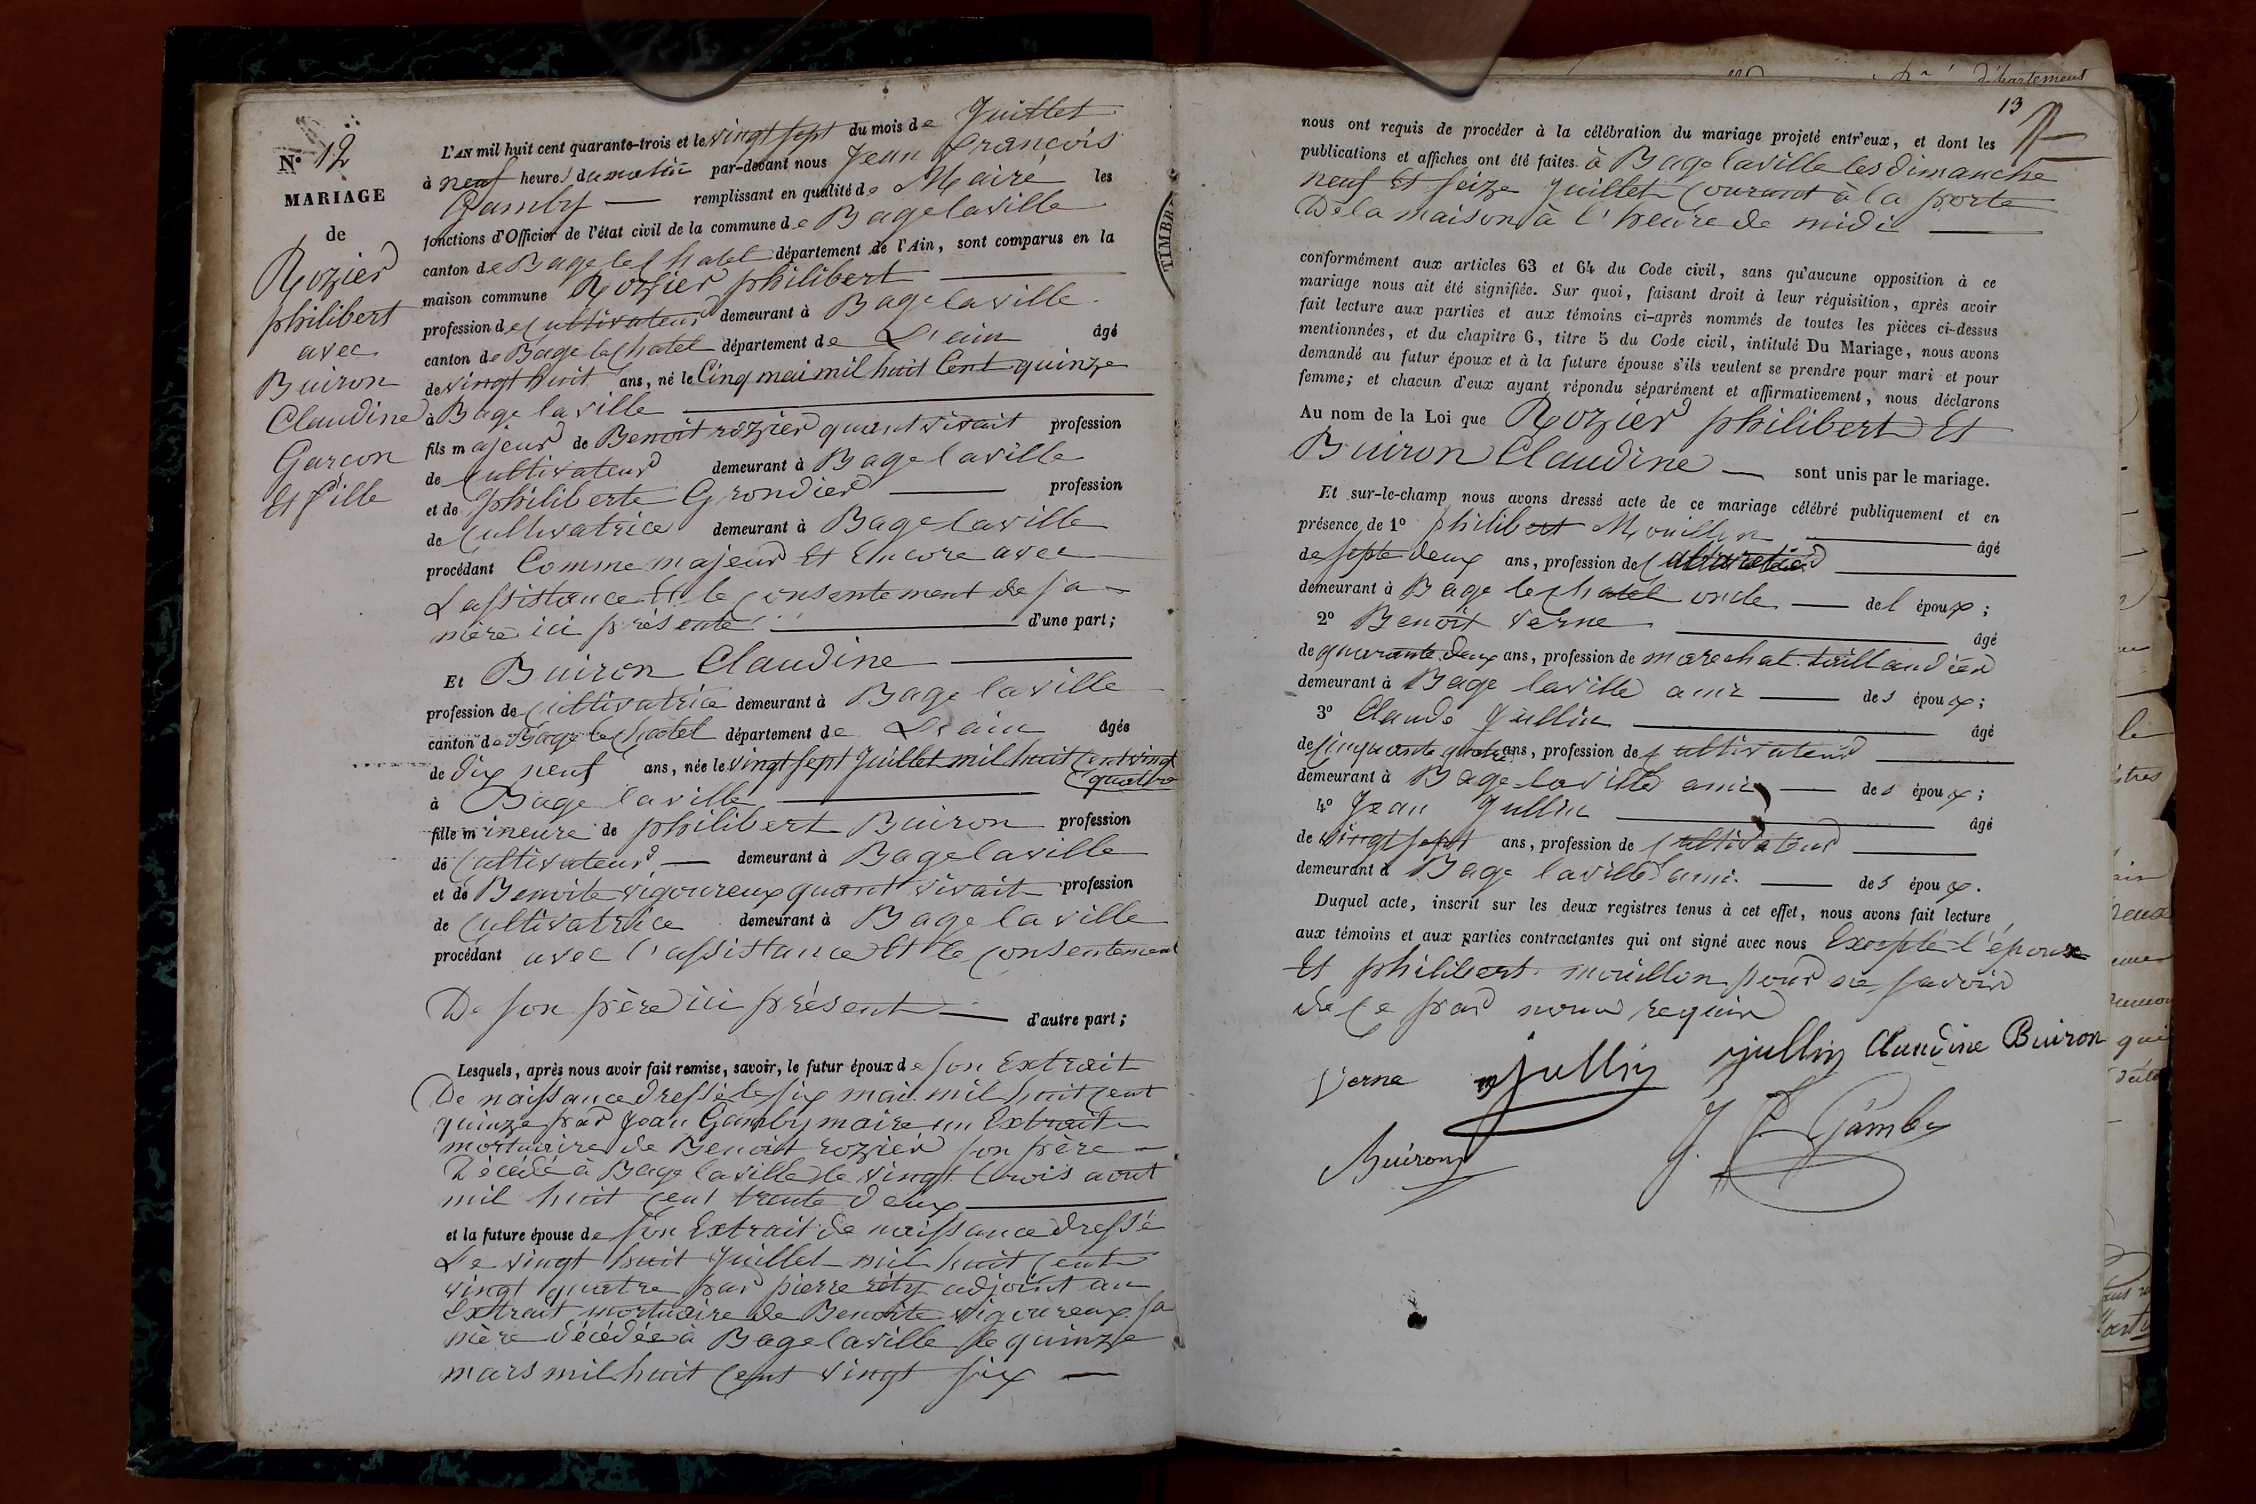 N° 12
MARIAGE
de
Rozier
philibert
avec
Buiron
Claudine
Garcon
et fille
L'AN mil huit cent quarante-trois et le vingt sept du mois de Juillet
à neuf heures du matin par-devant nous Jean François
Gamby — remplissant en qualité de Maire les
fonctions d'Officier de l'état civil de la commune de Bage laville
canton de Bage le Chatel département de l'Ain, sont comparus en la
maison commune Rozier philibert
profession de Cultivateur demeurant à Bage laville
canton de Bage le Chatel département de L'ain âgé
de vingt huit ans, né le Cinq mai mil huit Cent quinze
à Bage laville
fils majeur de Benoit rozier quant vivait profession
de Cultivateur demeurant à Bage laville
et de philiberte Grondier profession
de Cultivatrice demeurant à Bage laville
procédant Comme majeur Et Encore avec
L'assistance Et le Consentement de sa
mère ici présente d'une part;
Et Buiron Claudine
profession de Cultivatrice demeurant à Bage laville
canton de Bage le Chatel département de L'ain âgée
de dix neuf ans, née le vingt sept Juillet mil huit Cent vingt
quatre
à Bage laville
fille mineure de philibert Buiron profession
de Cultivateur — demeurant à Bage laville
et de Benoite vigoureux quant vivait profession
de Cultivatrice demeurant à Bage laville
procédant avec l'assistance Et le Consentement
De son père ici présent — d'autre part;
Lesquels, après nous avoir fait remise, savoir, le futur époux de son Extrait
De naissance dressé le six mai mil huit Cent
quinze par Jean Gamby maire un Extrait
mortuaire de Benoit rozier son père
Décédé à Bage laville le vingt trois aout
mil huit Cent trente deux
et la future épouse de son Extrait de naissance dressé
Le vingt huit Juillet mil huit Cent
vingt quatre par pierre réty adjoint un
Extrait mortuaire de Benoite vigoureux sa
mère décédée à Bage laville le quinze
mars mil huit Cent vingt six —
TIMBR
département
13
nous ont requis de procéder à la célébration du mariage projeté entr'eux, et dont les
publications et affiches ont été faites à Bage laville les dimanche
neuf Et seize Juillet Courant à la porte
De la maison à l'heure de midi
conformément aux articles 63 et 64 du Code civil, sans qu'aucune opposition à ce
mariage nous ait été signifiée. Sur quoi, faisant droit à leur réquisition, après avoir
fait lecture aux parties et aux témoins ci-après nommés de toutes les pièces ci-dessus
mentionnées, et du chapitre 6, titre 5 du Code civil, intitulé Du Mariage, nous avons
demandé au futur époux et à la future épouse s'ils veulent se prendre pour mari et pour
femme; et chacun d'eux ayant répondu séparément et affirmativement, nous déclarons
Au nom de la Loi que Rozier philibert Et
Buiron Claudine — sont unis par le mariage.
Et sur-le-champ nous avons dressé acte de ce mariage célébré publiquement et en
présence de 1° philibert Mouillon âgé
de deux ans, profession de
demeurant à Bage le Chatel oncle — de l époux;
2° Benoit Verne âgé
de quarante deux ans, profession de marechal taillandier
demeurant à Bage laville ami — des époux;
3° Claude Jullin âgé
de Cinquante quatre ans, profession de Cultivateur
demeurant à Bage laville ami — des époux;
4° Jean Jullin âgé
de vingt sept ans, profession de Cultivateur
demeurant à Bage laville ami — des époux.
Duquel acte, inscrit sur les deux registres tenus à cet effet, nous avons fait lecture
aux témoins et aux parties contractantes qui ont signé avec nous Excepté l'époux
Et philibert mouillon pour ne savoir
de Ce par nous requis
Verne Jullin Jullin Claudine Buiron
Buiron J. F. Gamby